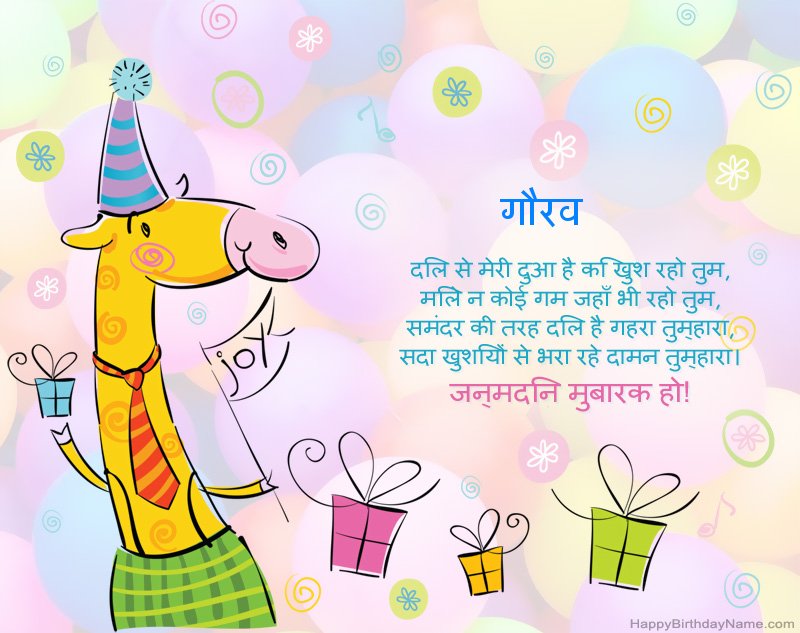 गौरव
दिल से मेरी दुआ है कि खुश रहो तुम,
मिले न कोई गम जहाँ भी रहो तुम,
समंदर की तरह दिल है गहरा तुम्हारा,
सदा खुशियों से भरा रहे दामन तुम्हारा।
जन्मदिन मुबारक हो!
joy
HappyBirthdayName.com